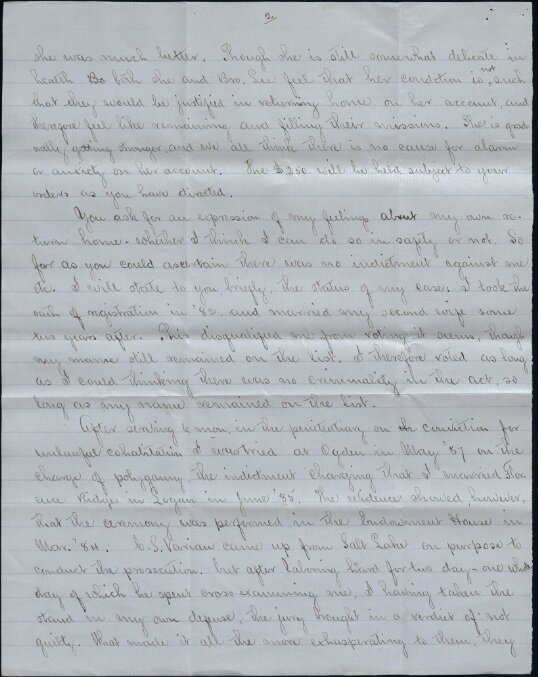 2
she was much better. Though she is still somewhat delicate in
health Bo both she and Bro. Lee feel that her condition is not such
that they would be justified in returning home on her account, and
therefore feel like remaining and filling their missions. She is grad-
ually getting stronger, and we all think there is no cause for alarm
or anxiety on her account. The $250 will be held subject to your
orders as you have directed.
You ask for an expression of my feelings about my own re-
turn home - whether I think I can do so in safety or not. So
far as you could ascertain there was no indictment against me
etc. I will state to you, briefly, the status of my case. I took the
oath of registration in '82 and married my second wife some
two years after. This disqualified me from voting it seems, though
my name still remained on the list. I therefore voted as long
as I could thinking there was no criminality in the act, so
long as my name remained on the list.
After serving 6 mon, in the penitentiary on conviction for
unlawful cohabitation I was tried at Ogden in May '87 on the
charge of polygamy, the indictment charging that I married Flor-
ence Ridges in Logan in June '85. The evidence showed, however,
that the ceremony was performed in the Endowment House in
Mar. '84. C.S. Varian came up from Salt Lake on purpose to
conduct the prosecution. but after laboring hard for two day - one whole
day of which he spent cross-examining me, I having taken the
stand in my own defense, the jury brought in a verdict of not
guilty. That made it all the more exhasperating to them, they